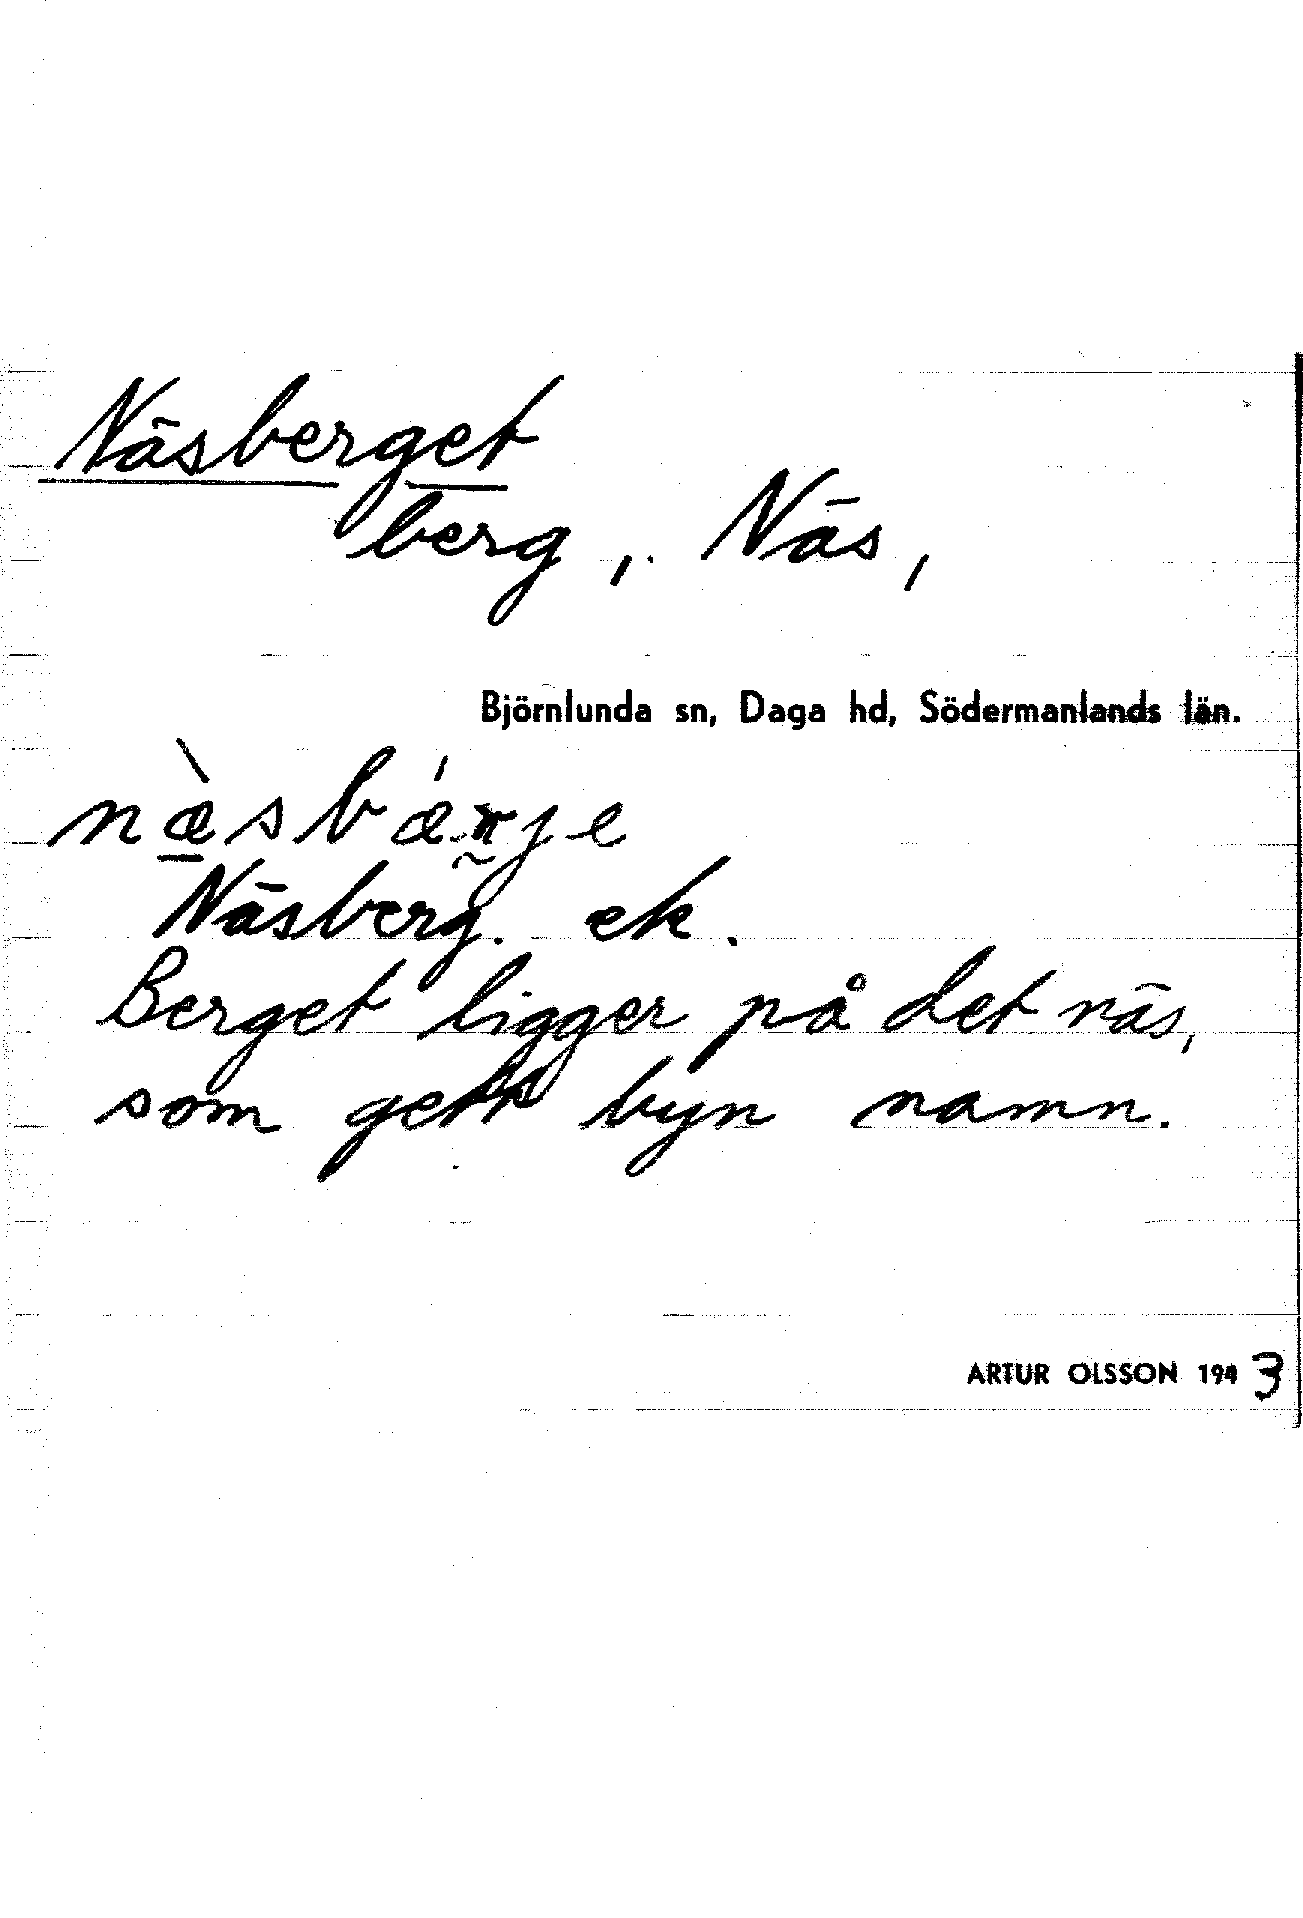 Näsberget
berg, Näs,
Björnlunda sn, Daga hd, Södermanlands län.
næ̀sbǽrje
Näsberg. ek.
Berget ligger på det näs,
som gett byn namn.
ARTUR OLSSON 1943